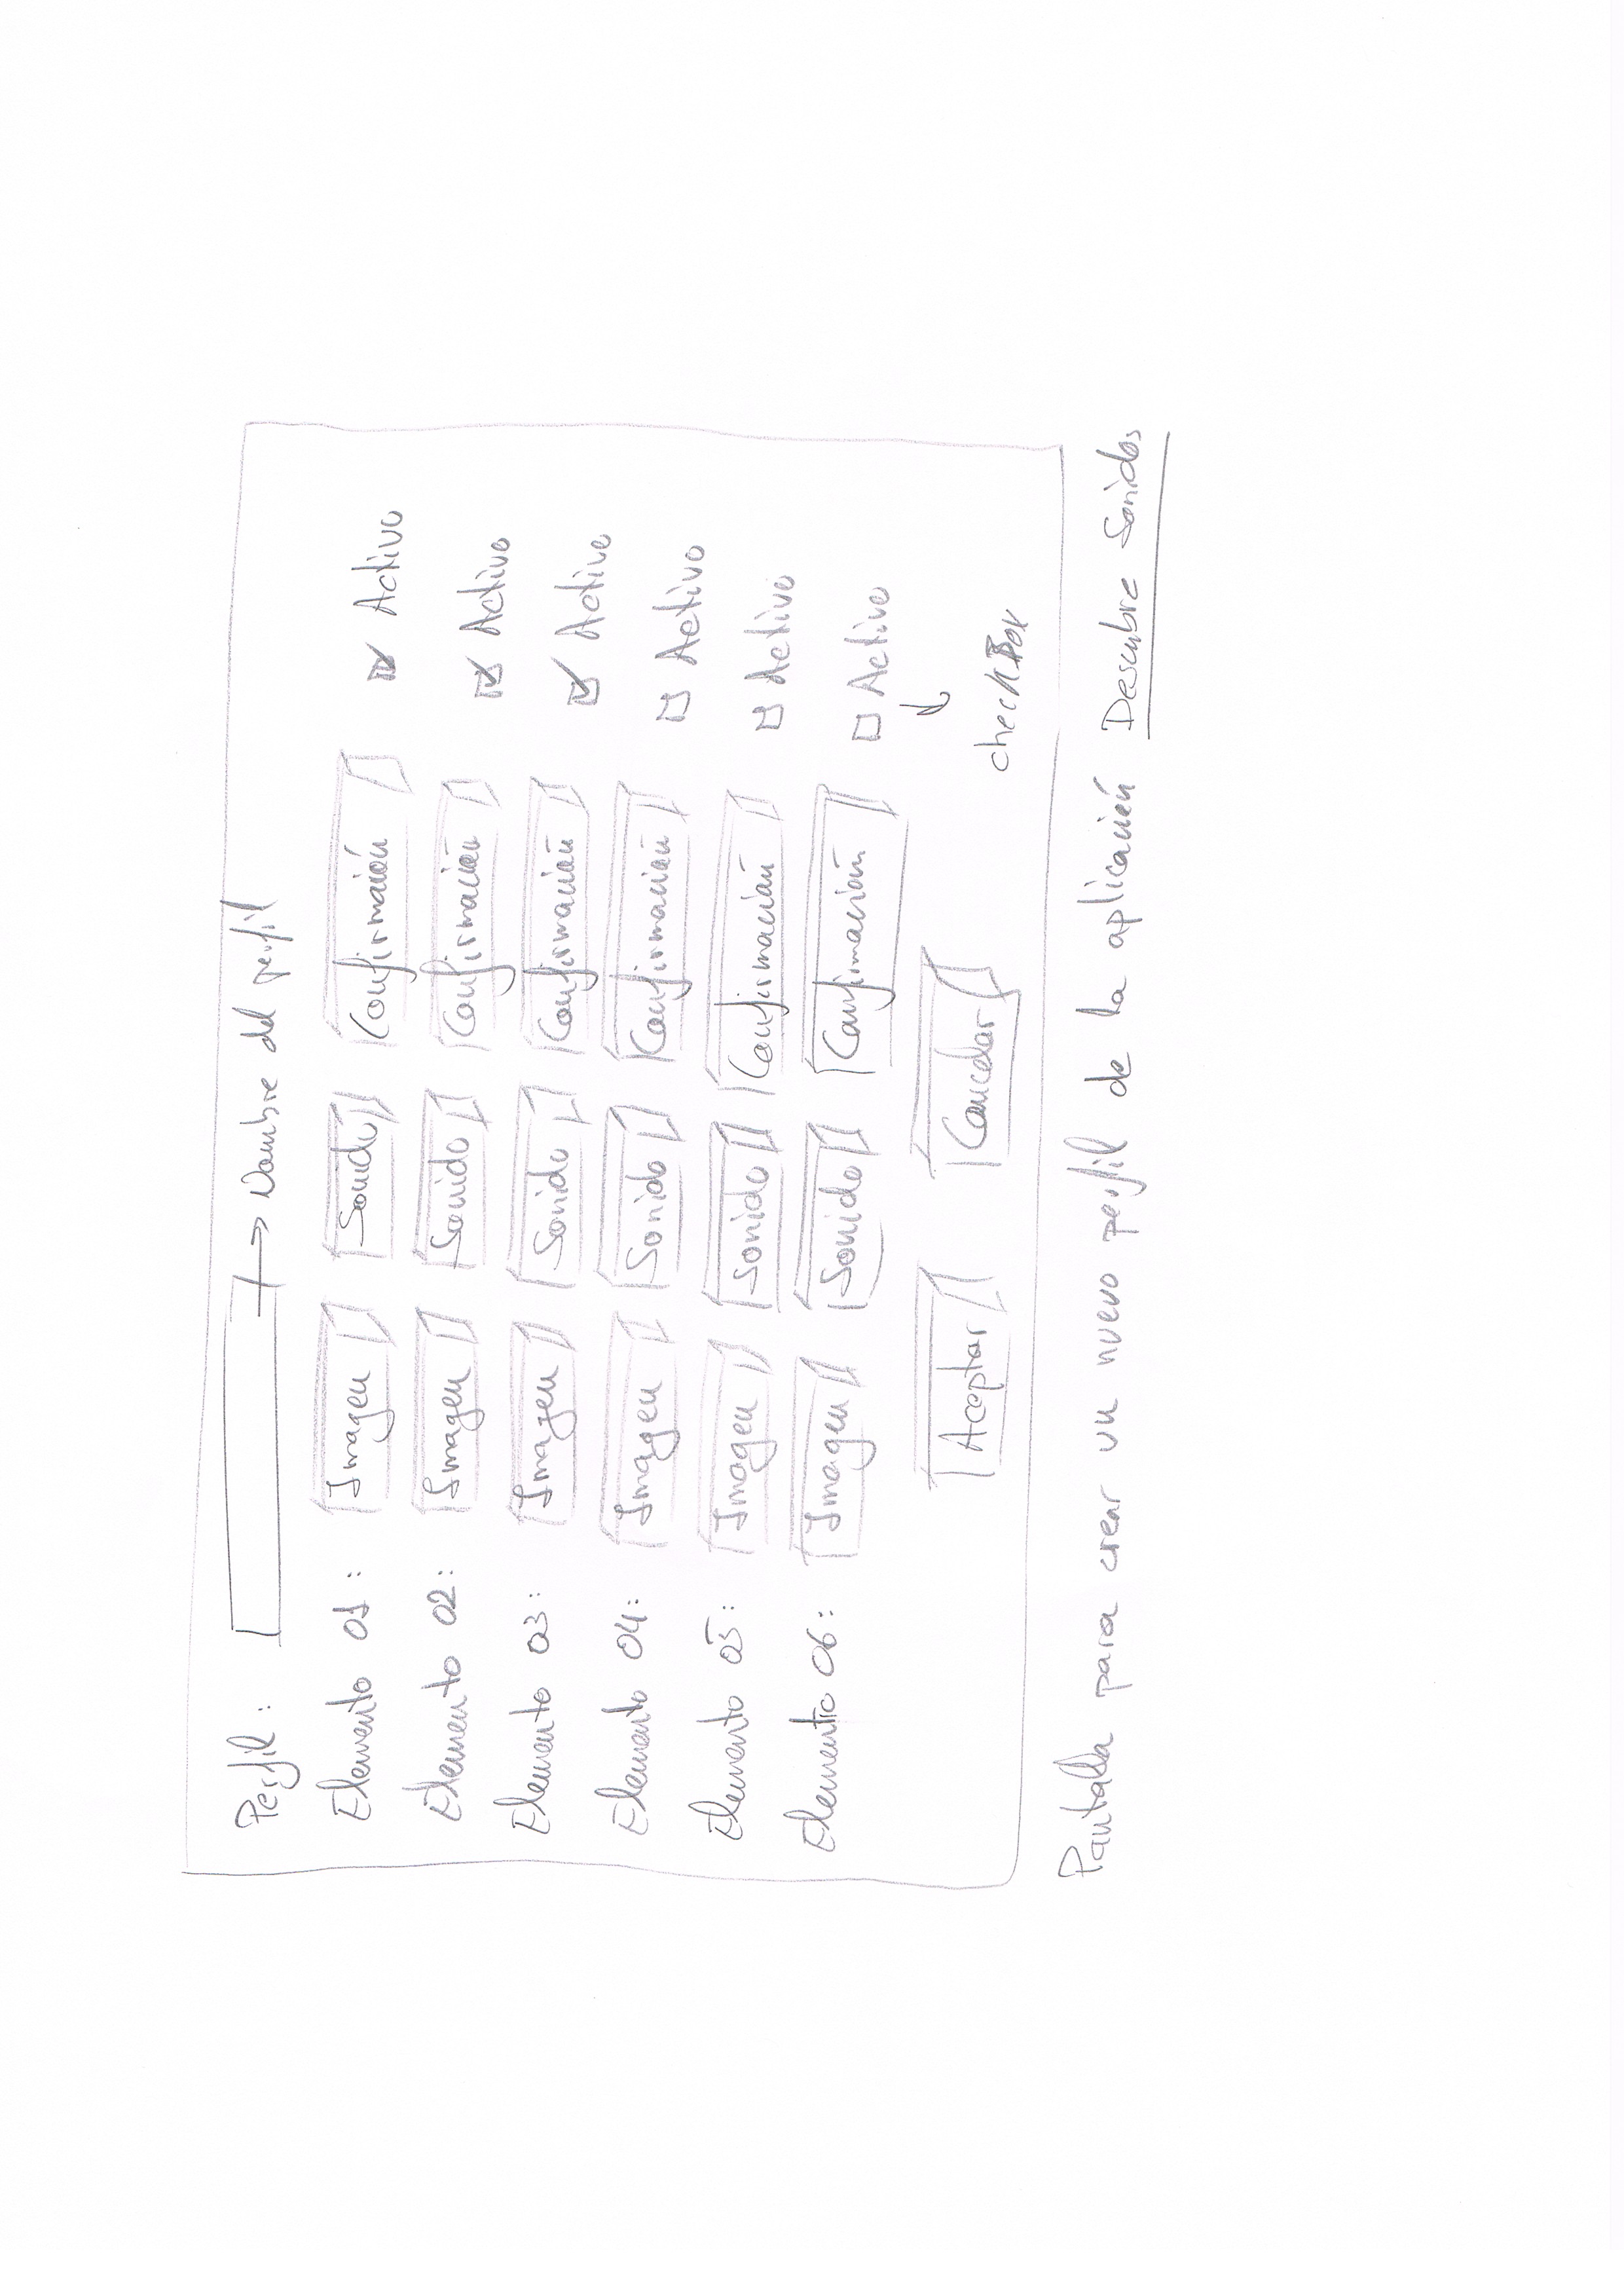 Perfil : → Nombre del perfil
Elemento 01 : Imagen Sonido Confirmación Activo
Elemento 02: Imagen Sonido Confirmación Activo
Elemento 03: Imagen Sonido Confirmación Activo
Elemento 04: Imagen Sonido Confirmación Activo
Elemento 05: Imagen Sonido Confirmación Activo
Elemento 06: Imagen Sonido Confirmación Activo
Aceptar Cancelar checkBox
Pantalla para crear un nuevo perfil de la aplicación Descubre Sonidos